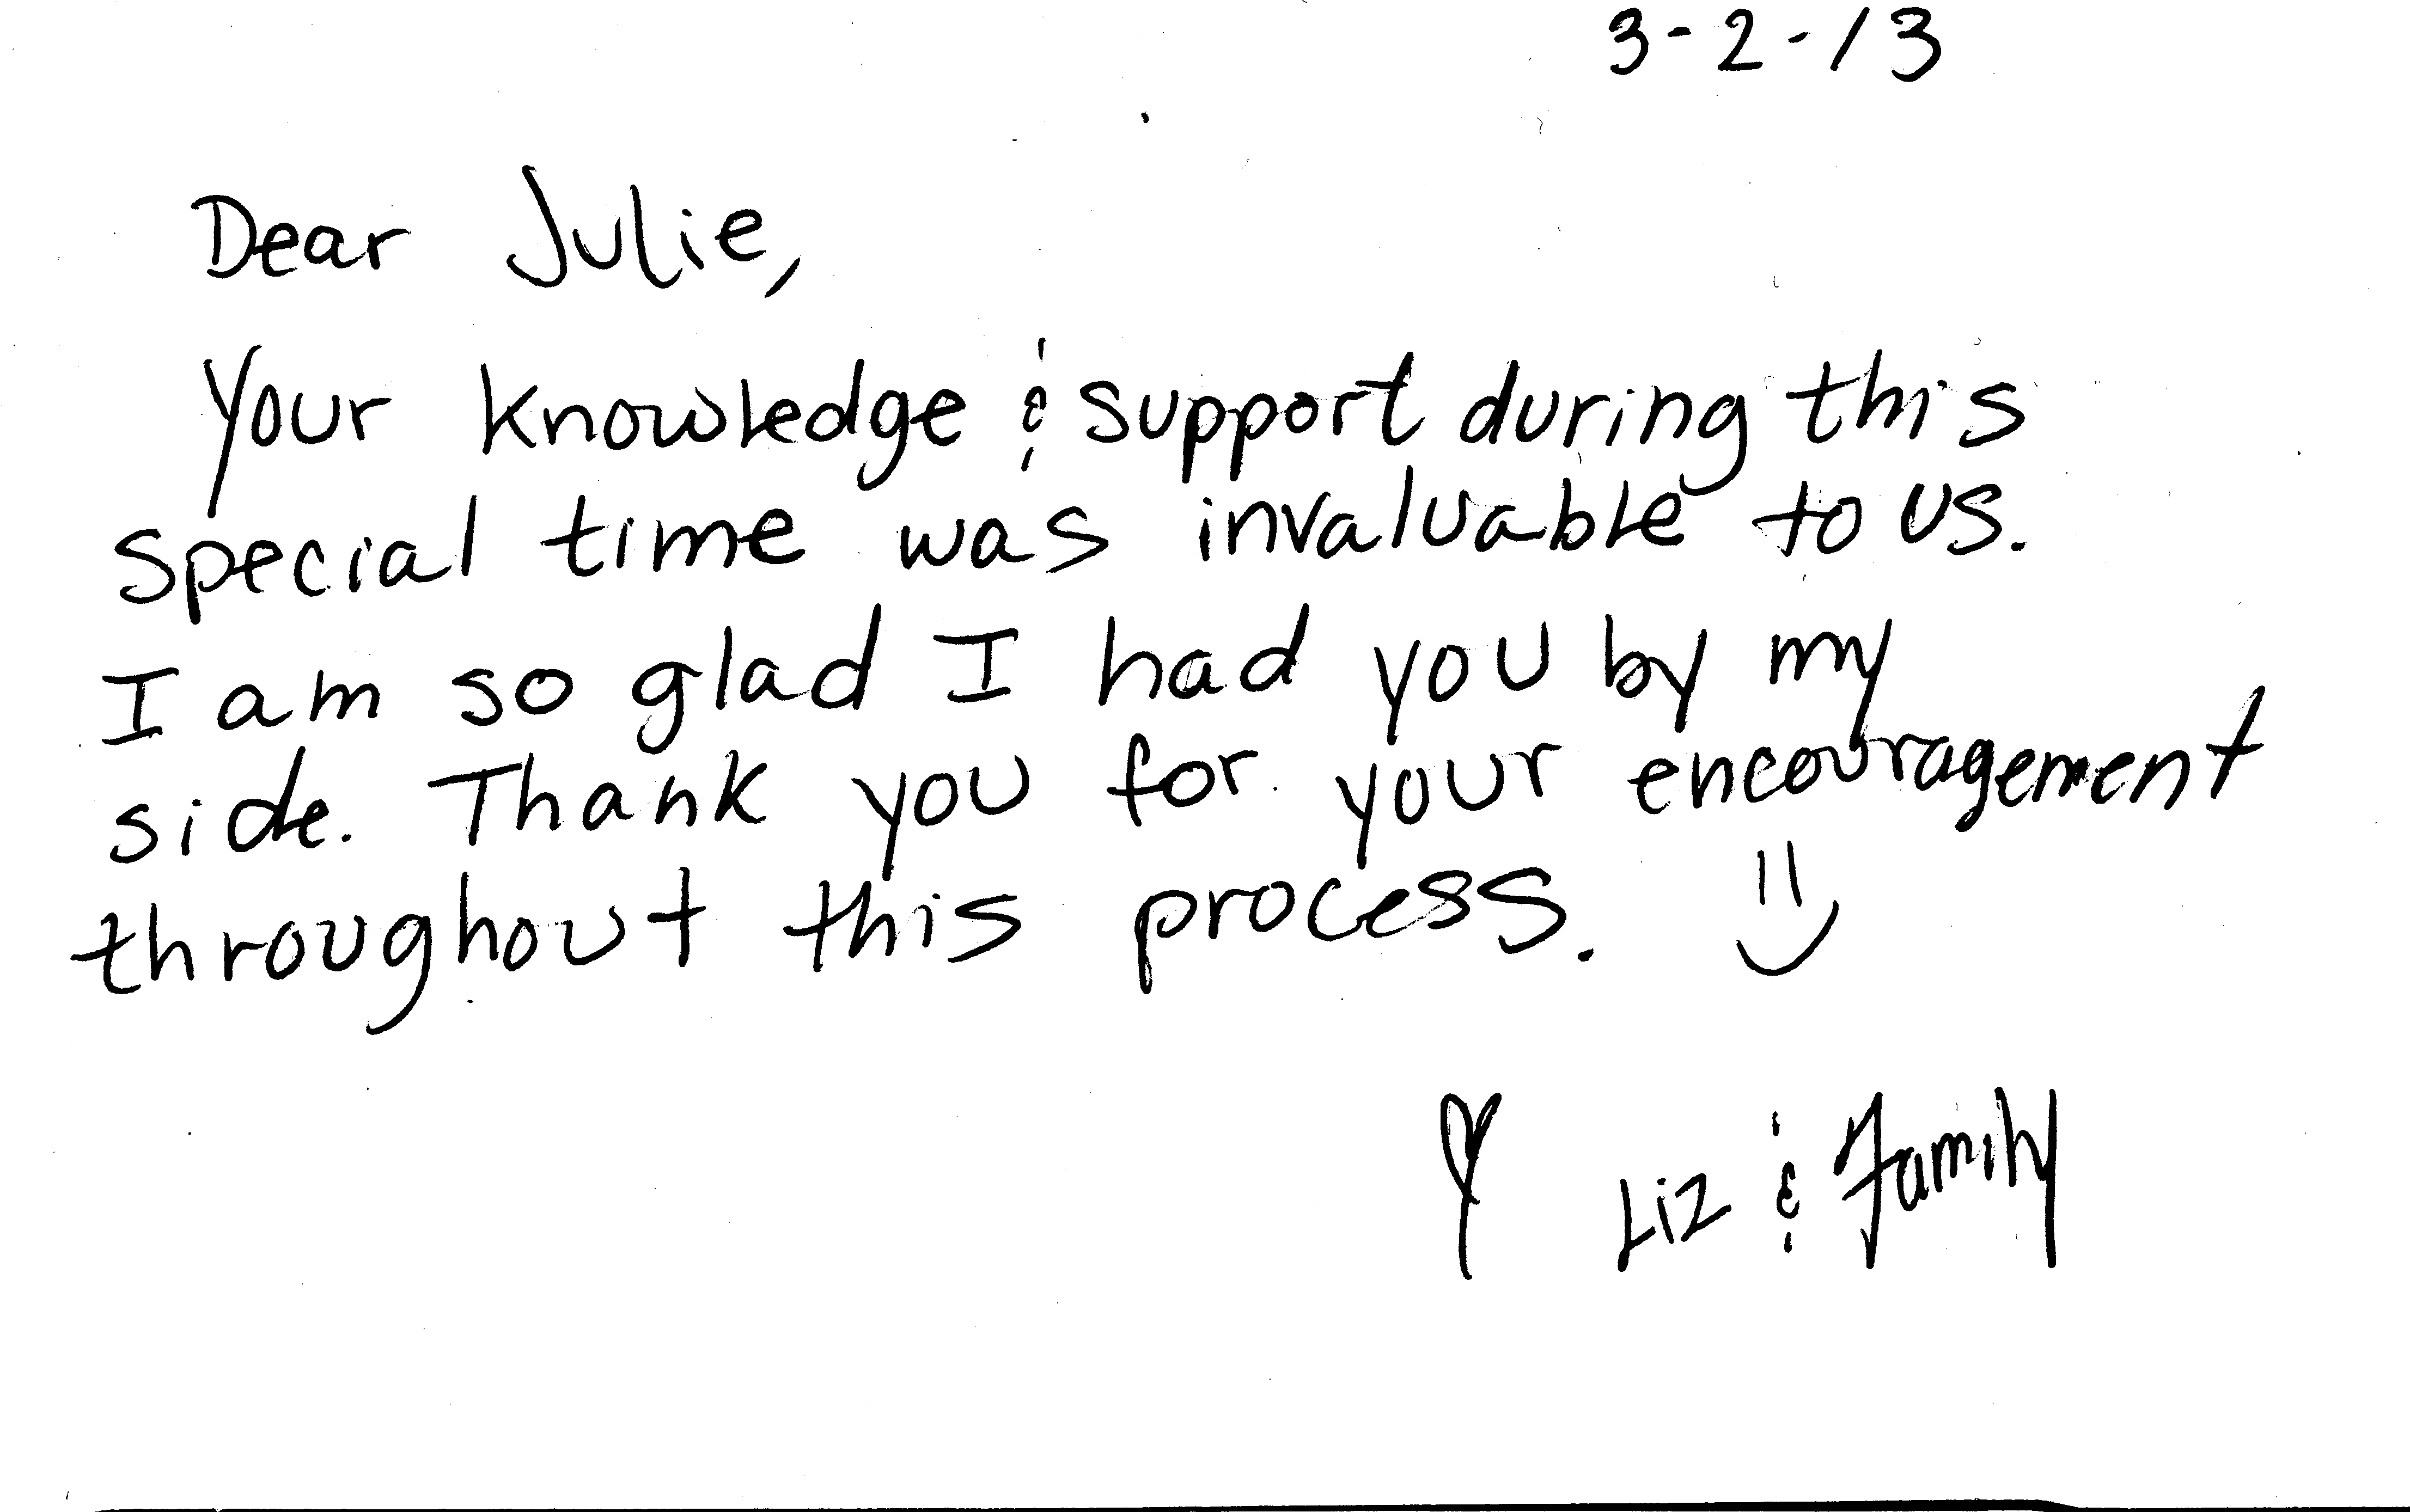 3-2-13
Dear Julie,
Your knowledge & support during this
special time was invaluable to us.
I am so glad I had you by my
side. Thank you for your encouragement
throughout this process. :)
♡ Liz & Family